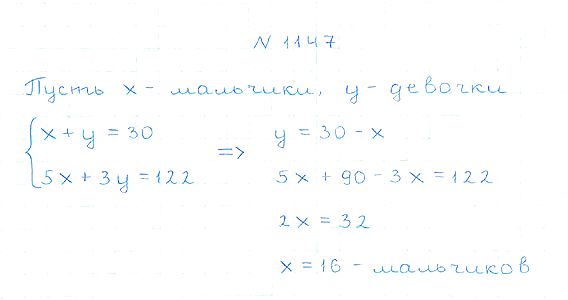 N 1147
Пусть x - мальчики, y - девочки
x + y = 30
5x + 3y = 122
=>
y = 30 - x
5x + 90 - 3x = 122
2x = 32
x = 16 - мальчиков